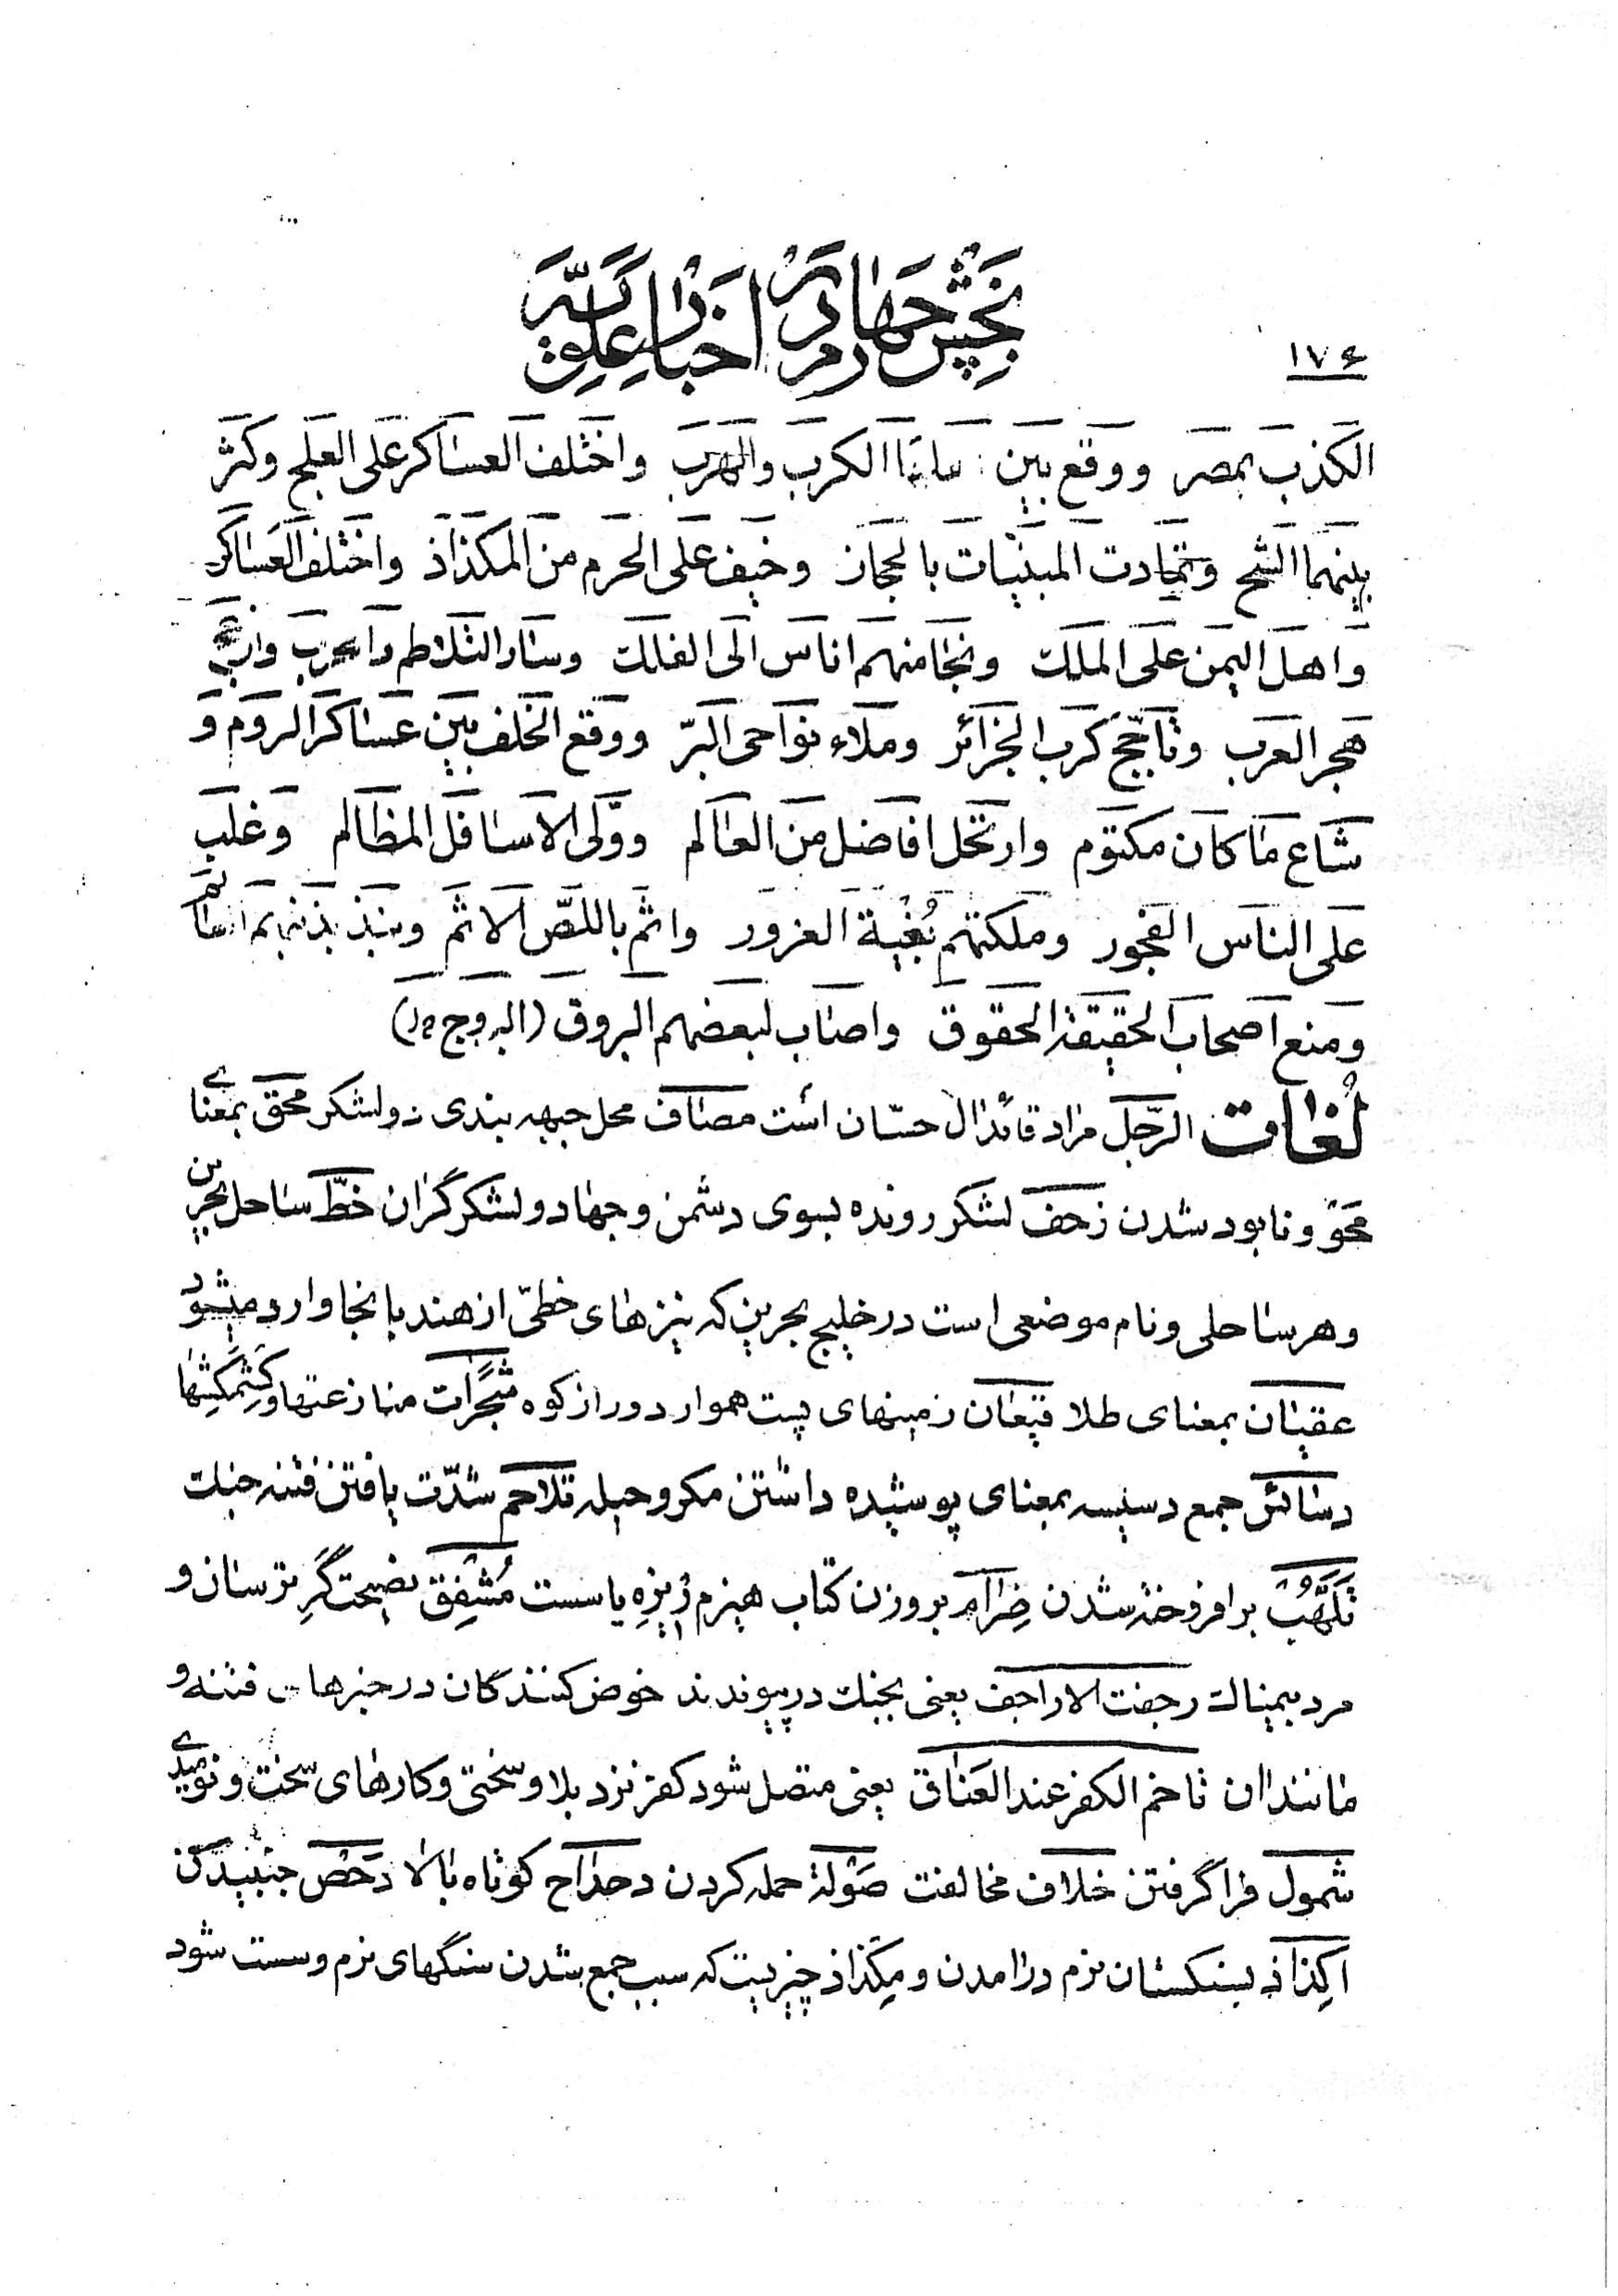 بخش چهارم در اخبار علویه
۱۷۶
الکذب بمصر ووقع بین الکرب والهرب واختلف العساکر علی العلج وکثر
بینهما الشح وتمادت المبنیات بالحجاز وخیف علی الحرم من المکذاذ واختلف العساکر
واهل الیمن علی الملک ونجا منهم اناس الی الفلک وسار التلاطم
هجر العرب وتاجج کرب الجزائر وملاء نواحی البر ووقع الخلف بین عساکر الروم و
شاع ما کان مکتوم وارتحل افاضل من العالم وولی الاسافل المظالم وغلب
علی الناس الفجور وملکتهم بُغْیة الغرور واثم باللصّ الاثم ونبذ بذنبهم
ومنع اصحاب الحقیقة الحقوق واصاب لبعضهم البروق
لُغات الرّجل مراد قائد ال حسّان است مصاف محل جبهه بندی دو لشکر محق بمعنای
محو و نابود شدن زحف لشکر رونده بسوی دشمن و جهاد و لشکر گران خطّ ساحل بحرین
و هر ساحلی و نام موضعی است در خلیج بحرین که نیزهای خطیّ از هند بانجا وارد میشود
عقیان بمعنای طلا قیعان زمینهای پست هموار دور از کوه مشجّرات منازعتها و کشمکشها
دسائس جمع دسیسه بمعنای پوشیده داشتن مکر و حیله تلاحم شدّت یافتن فتنه جنک
تَلَهُّبْ برافروخته شدن ضِرام بروزن کتاب هیزم ریزه یا سست مُشْفِق نصیحت گر ترسان و
مرد بیمناک رجفت الاراجف یعنی بجنک در پیوندند خوض کنندکان در خبرهای فتنه و
مانند ان تاخم الکفر عند العناق یعنی متصل شود کفر نزد بلا و سختی و کارهای سخت و نومیدی
شمول فرا گرفتن خلاف مخالفت صَوْلة حمله کردن دحداح کوتاه بالا دَحْض جنبیدن
اکِذاذ بسنکستان نرم درامدن و مِکذاذ چیزیست که سبب جمع شدن سنگهای نرم و سست شود